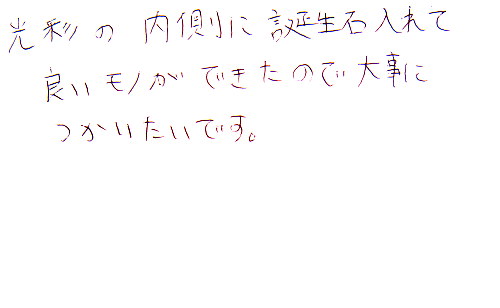 光彩の内側に誕生石入れて
良いモノができたので大事に
つかいたいです。